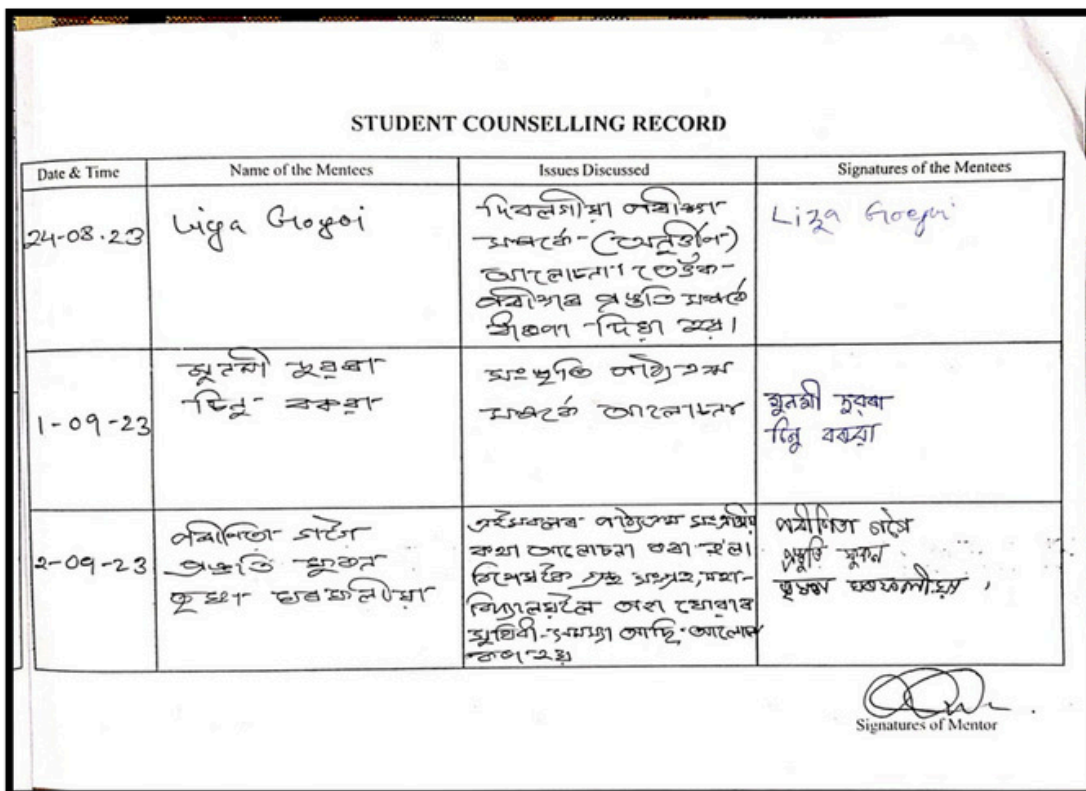 STUDENT COUNSELLING RECORD
Date & Time
Name of the Mentees
Issues Discussed
Signatures of the Mentees
24-08-23
Liza Gogoi
পৰীক্ষা
সম্পৰ্কে - (অনুৰ্ত্তীৰ্ণ)
আলোচনা। তেওঁক
পৰীক্ষাৰ প্ৰস্তুতি সম্পৰ্কে
দিয়া হয়।
Liza Gogoi
1-09-23
দুৱৰা
চিনু বৰুৱা
সংস্কৃতি পাঠ্যক্ৰম
সম্পৰ্কে আলোচনা
দুৱৰা
চিনু বৰুৱা
2-09-23
পৰীণিতা গগৈ
প্ৰস্তুতি ফুকন
তৃষ্ণা ঘৰফলীয়া
পাঠ্যক্ৰম
কথা আলোচনা কৰা হ'ল।
বিশেষকৈ গ্ৰন্থ সংগ্ৰহ, মহা-
বিদ্যালয়লৈ অহা যোৱাৰ
সমস্যা আদি আলোচনা
কৰা হয়
পৰীণিতা গগৈ
প্ৰস্তুতি ফুকন
তৃষ্ণা ঘৰফলীয়া
Signatures of Mentor